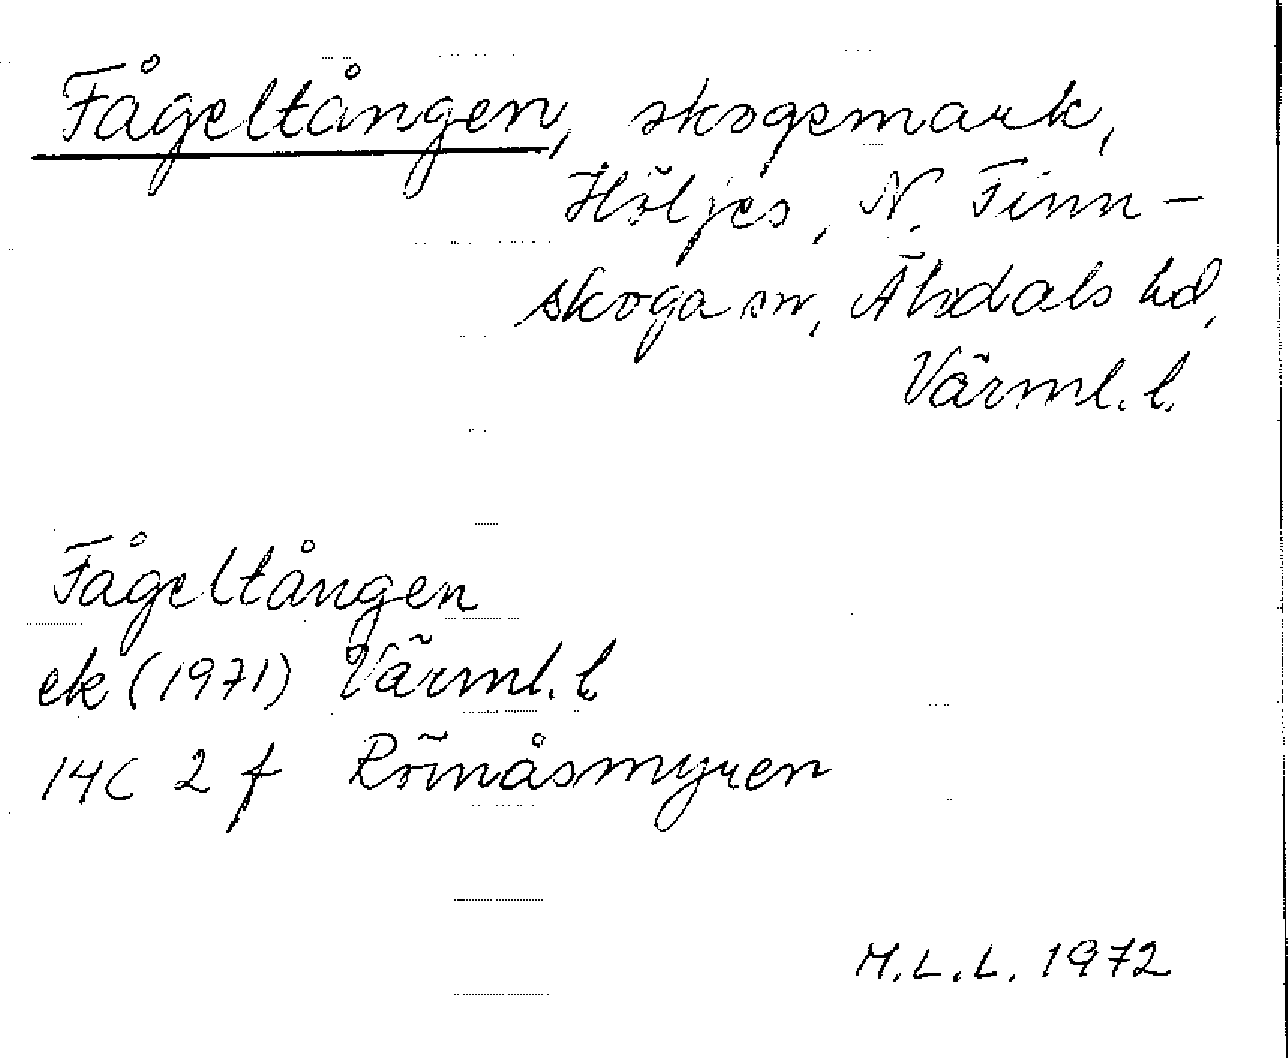 Fågeltången, skogsmark,
Höljes, N. Finn-
skoga sn, Älvdals hd,
Värml. l.
Fågeltången
ek (1971) Värml. l
14C 2 f Rönåsmyren
M.L.L. 1972